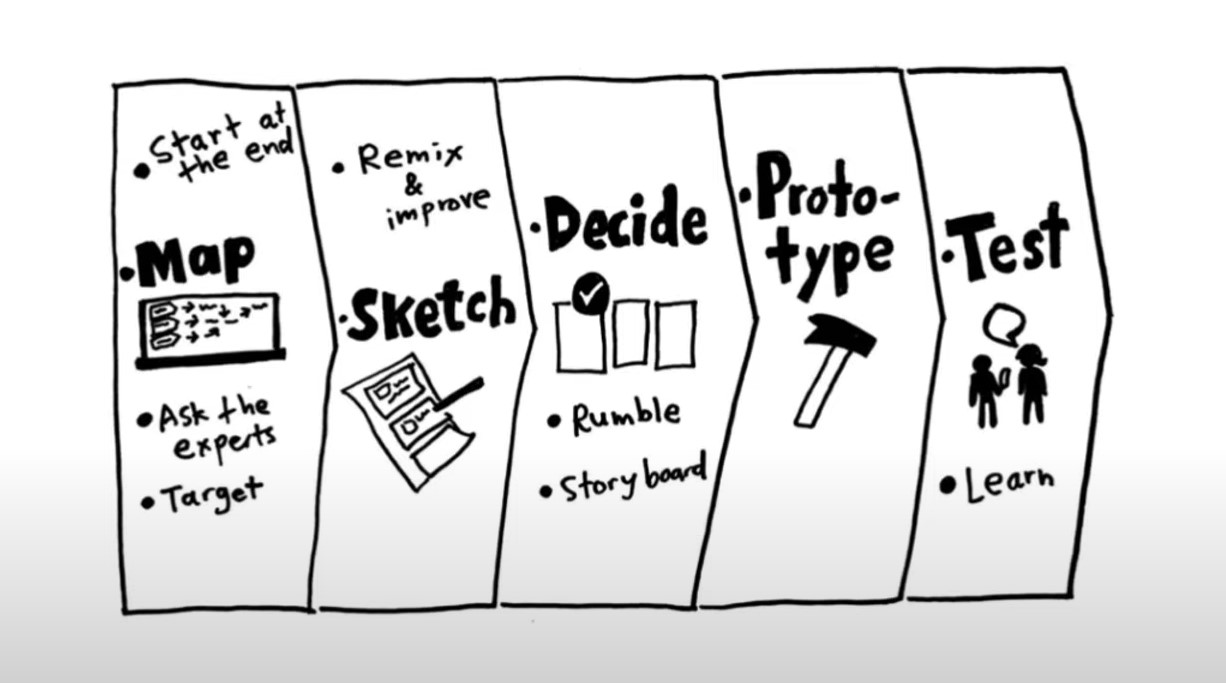 • Start at
the end
• Map
• Ask the
experts
• Target
• Remix
&
improve
• Sketch
• Decide
• Rumble
• Story board
• Proto-
type
• Test
• Learn